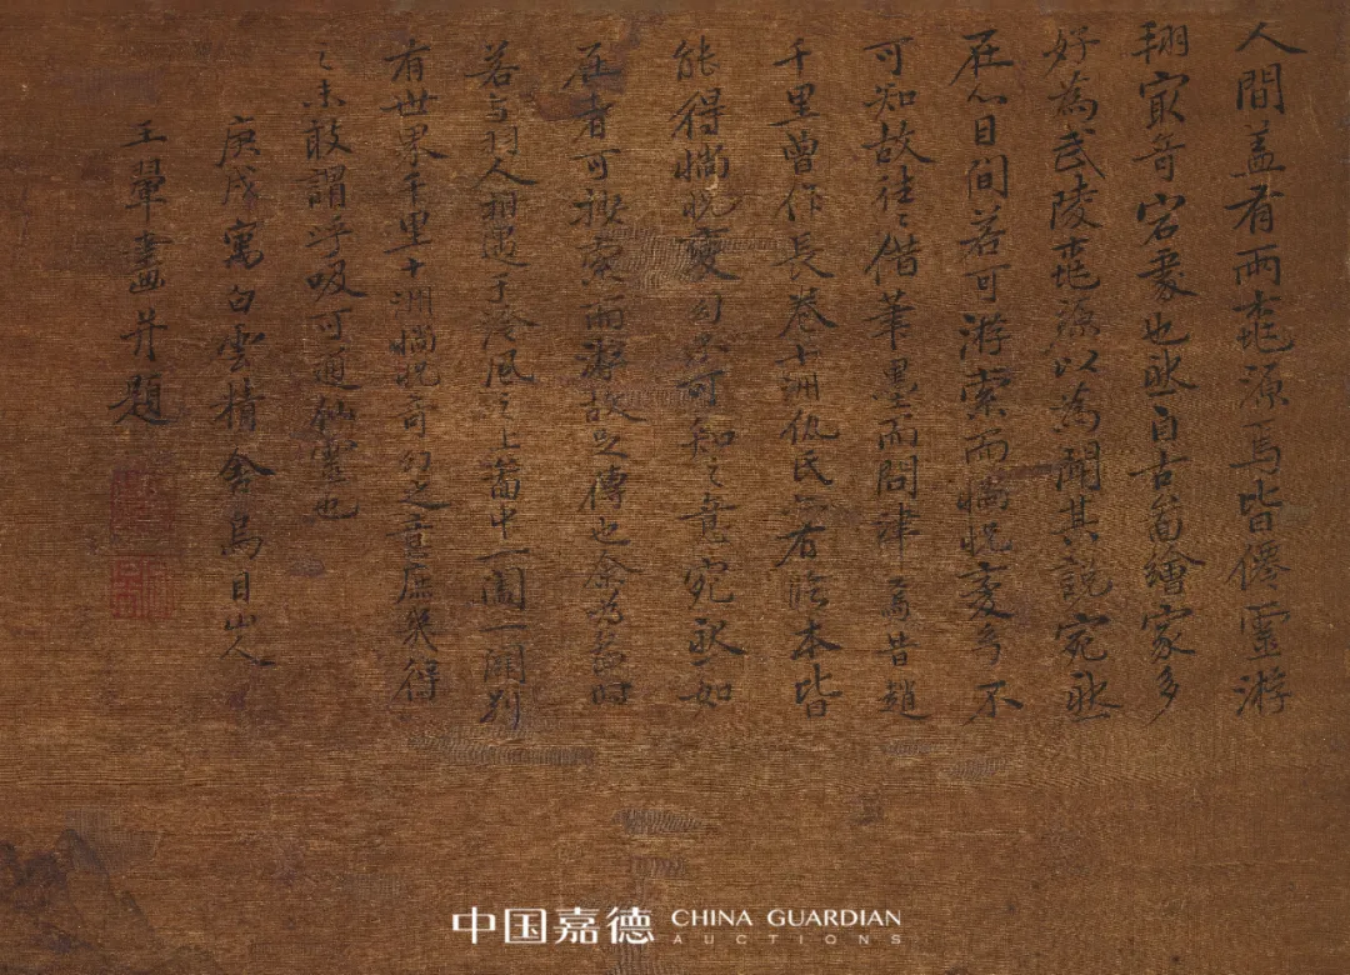 人間盖有兩桃源焉皆僊靈游
翔冣奇宕裏也然自古啚繪家多
好為武陵桃源以為聞其説宛然
在心目间若可游索而惝怳变多不
可知故往〻借筆墨而問津焉昔趙
千里曾作長卷十洲仇氏亦有臨本皆
能得惝怳變幻不可知之意宛然如
在者可披索而游故足傳也余為啚時
若与羽人相遇于泠风之上啚中一闔一闢别
有世界千里十洲惝怳奇幻之意庶㡬得
之未敢謂呼吸可通仙靈也
庚戌寓白雲精舍烏目山人
王翬畫并題
中国嘉德 CHINA GUARDIAN
AUCTIONS